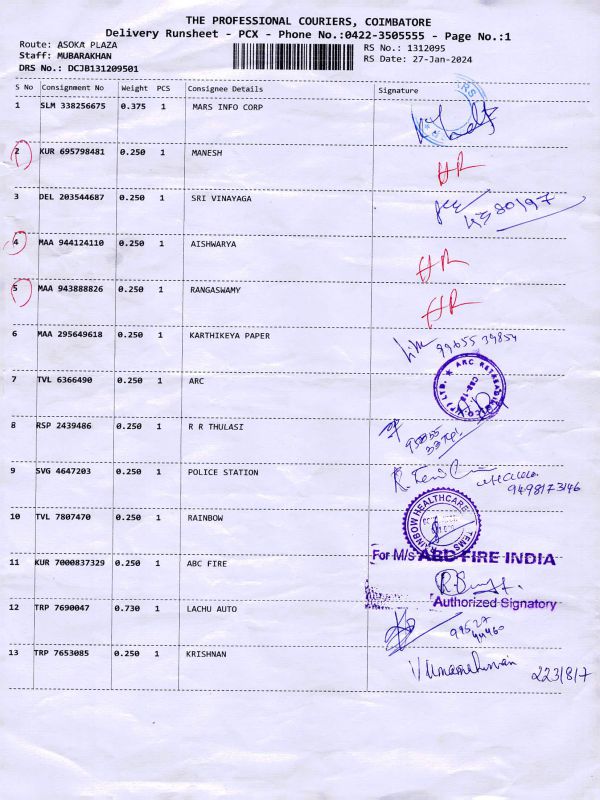 THE PROFESSIONAL COURIERS, COIMBATORE
Delivery Runsheet - PCX - Phone No.:0422-3505555 - Page No.:1
Route: ASOKA PLAZA
RS No.: 1312095
Staff: MUBARAKHAN
RS Date: 27-Jan-2024
DRS No.: DCJB131209501
S No Consignment No Weight PCS Consignee Details Signature
1 SLM 338256675 0.375 1 MARS INFO CORP
2 KUR 695798481 0.250 1 MANESH
HR
3 DEL 203544687 0.250 1 SRI VINAYAGA
80197
4 MAA 944124110 0.250 1 AISHWARYA
HR
5 MAA 943888826 0.250 1 RANGASWAMY
HR
6 MAA 295649618 0.250 1 KARTHIKEYA PAPER
7 TVL 6366490 0.250 1 ARC
8 RSP 2439486 0.250 1 R R THULASI
9 SVG 4647203 0.250 1 POLICE STATION
9498173146
10 TVL 7807470 0.250 1 RAINBOW
RAINBOW HEALTHCARE
11 KUR 7000837329 0.250 1 ABC FIRE
For M/s ABD FIRE INDIA
Authorized Signatory
12 TRP 7690047 0.730 1 LACHU AUTO
99527
44460
13 TRP 7653085 0.250 1 KRISHNAN
223187